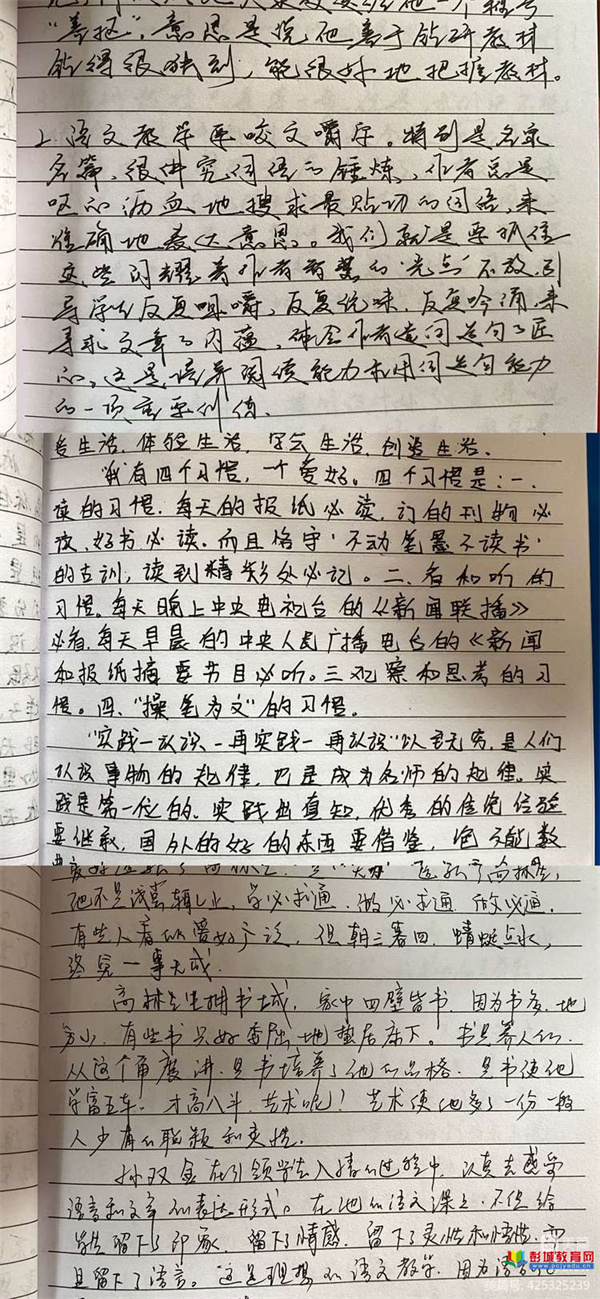 “善抠”，意思是说他善于钻研教材
钻得很深刻，能很好地把握教材。
2.语文教学要咬文嚼字。特别是名家
名篇，很讲究词语的锤炼，作者总是
呕心沥血地搜求最贴切的词语，来
准确地表达意思。我们就是要抓住
这些闪耀着作者智慧的“光点”不放，引
导学生反复咀嚼，反复玩味，反复吟诵，来
寻求文章之内蕴，体会作者遣词造句之匠
心，这是培养阅读能力和用词造句能力
的一项重要训练。
爱生活，体验生活，学会生活，创造生活。
“我有四个习惯，一个爱好。四个习惯是：一、
读的习惯。每天的报纸必读，订的刊物必
读，好书必读。而且恪守‘不动笔墨不读书’
的古训，读到精彩处必记。二、看和听的
习惯。每天晚上中央电视台的《新闻联播》
必看，每天早晨的中央人民广播电台的《新闻
和报纸摘要节目必听。三观察和思考的习
惯。四、“操笔为文”的习惯。
“实践—认识—再实践—再认识”以至无穷，是人们
认识事物的规律，也是成为名师的规律。实
践是第一位的。实践出真知，优秀的传统经验
要继承，国外的好的东西要借鉴，绝不能数
他不是浅尝辄止，学必求通，做必求通，做必通。
有些人看似爱好广泛，但朝三暮四，蜻蜓点水，
终究一事无成。
高林先生拥书城，家中四壁皆书，因为书多，地
方小，有些书只好委屈地蛰居床下。书是养人的，
从这个角度讲，是书培养了他的品格，是书使他
学富五车，才高八斗，艺术呢！艺术使他多了一份一般
人少有的聪颖和灵性。
孙双金在引领学生入情的过程中，认真去感受
语言和文章的表达形式。在他的语文课上，不但给
学生留下了印象，留下了情感，留下了灵性和悟性，而
且留下了语言。这是理想的语文教学，因为语言
彭城教育网
www.pcjyedu.cn
425325239